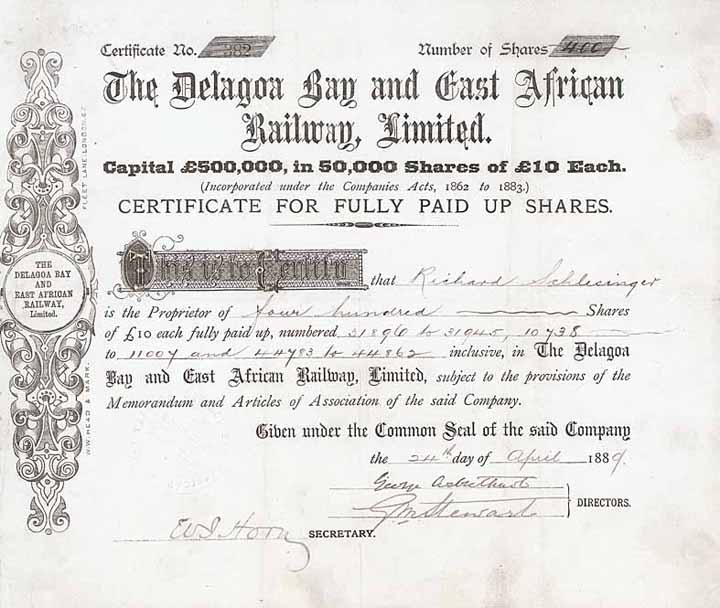 Certificate No. 382 Number of Shares 400
The Delagoa Bay and East African
Railway, Limited.
Capital £500,000, in 50,000 Shares of £10 Each.
(Incorporated under the Companies Acts, 1862 to 1883.)
CERTIFICATE FOR FULLY PAID UP SHARES.
This is to Certify that Richard Schlesinger
is the Proprietor of four hundred Shares
of £10 each fully paid up, numbered 31896 to 31945, 10738
to 11007 and 44783 to 44862 inclusive, in The Delagoa
Bay and East African Railway, Limited, subject to the provisions of the
Memorandum and Articles of Association of the said Company.
Given under the Common Seal of the said Company
the 24th day of April 1889.
George
GM Stewart
DIRECTORS.
SECRETARY.
THE
DELAGOA BAY
AND
EAST AFRICAN
RAILWAY,
Limited.
W.W. HEAD & MARK.
FLEET LANE, LONDON, E.C.